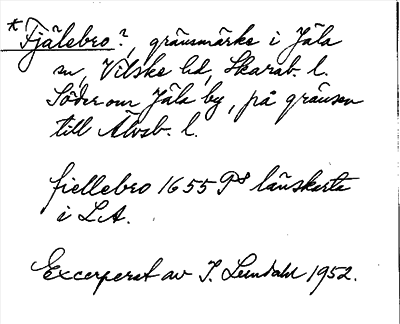 *Fjälebro?, gränsmärke i Jäla
sn, Vilske hd, Skarab. l.
Söder om Jäla by, på gränsen
till Älvsb. l.
fiellebro 1655 P8 länskarta
i L.A.
Excerperat av I. Lundahl 1952.